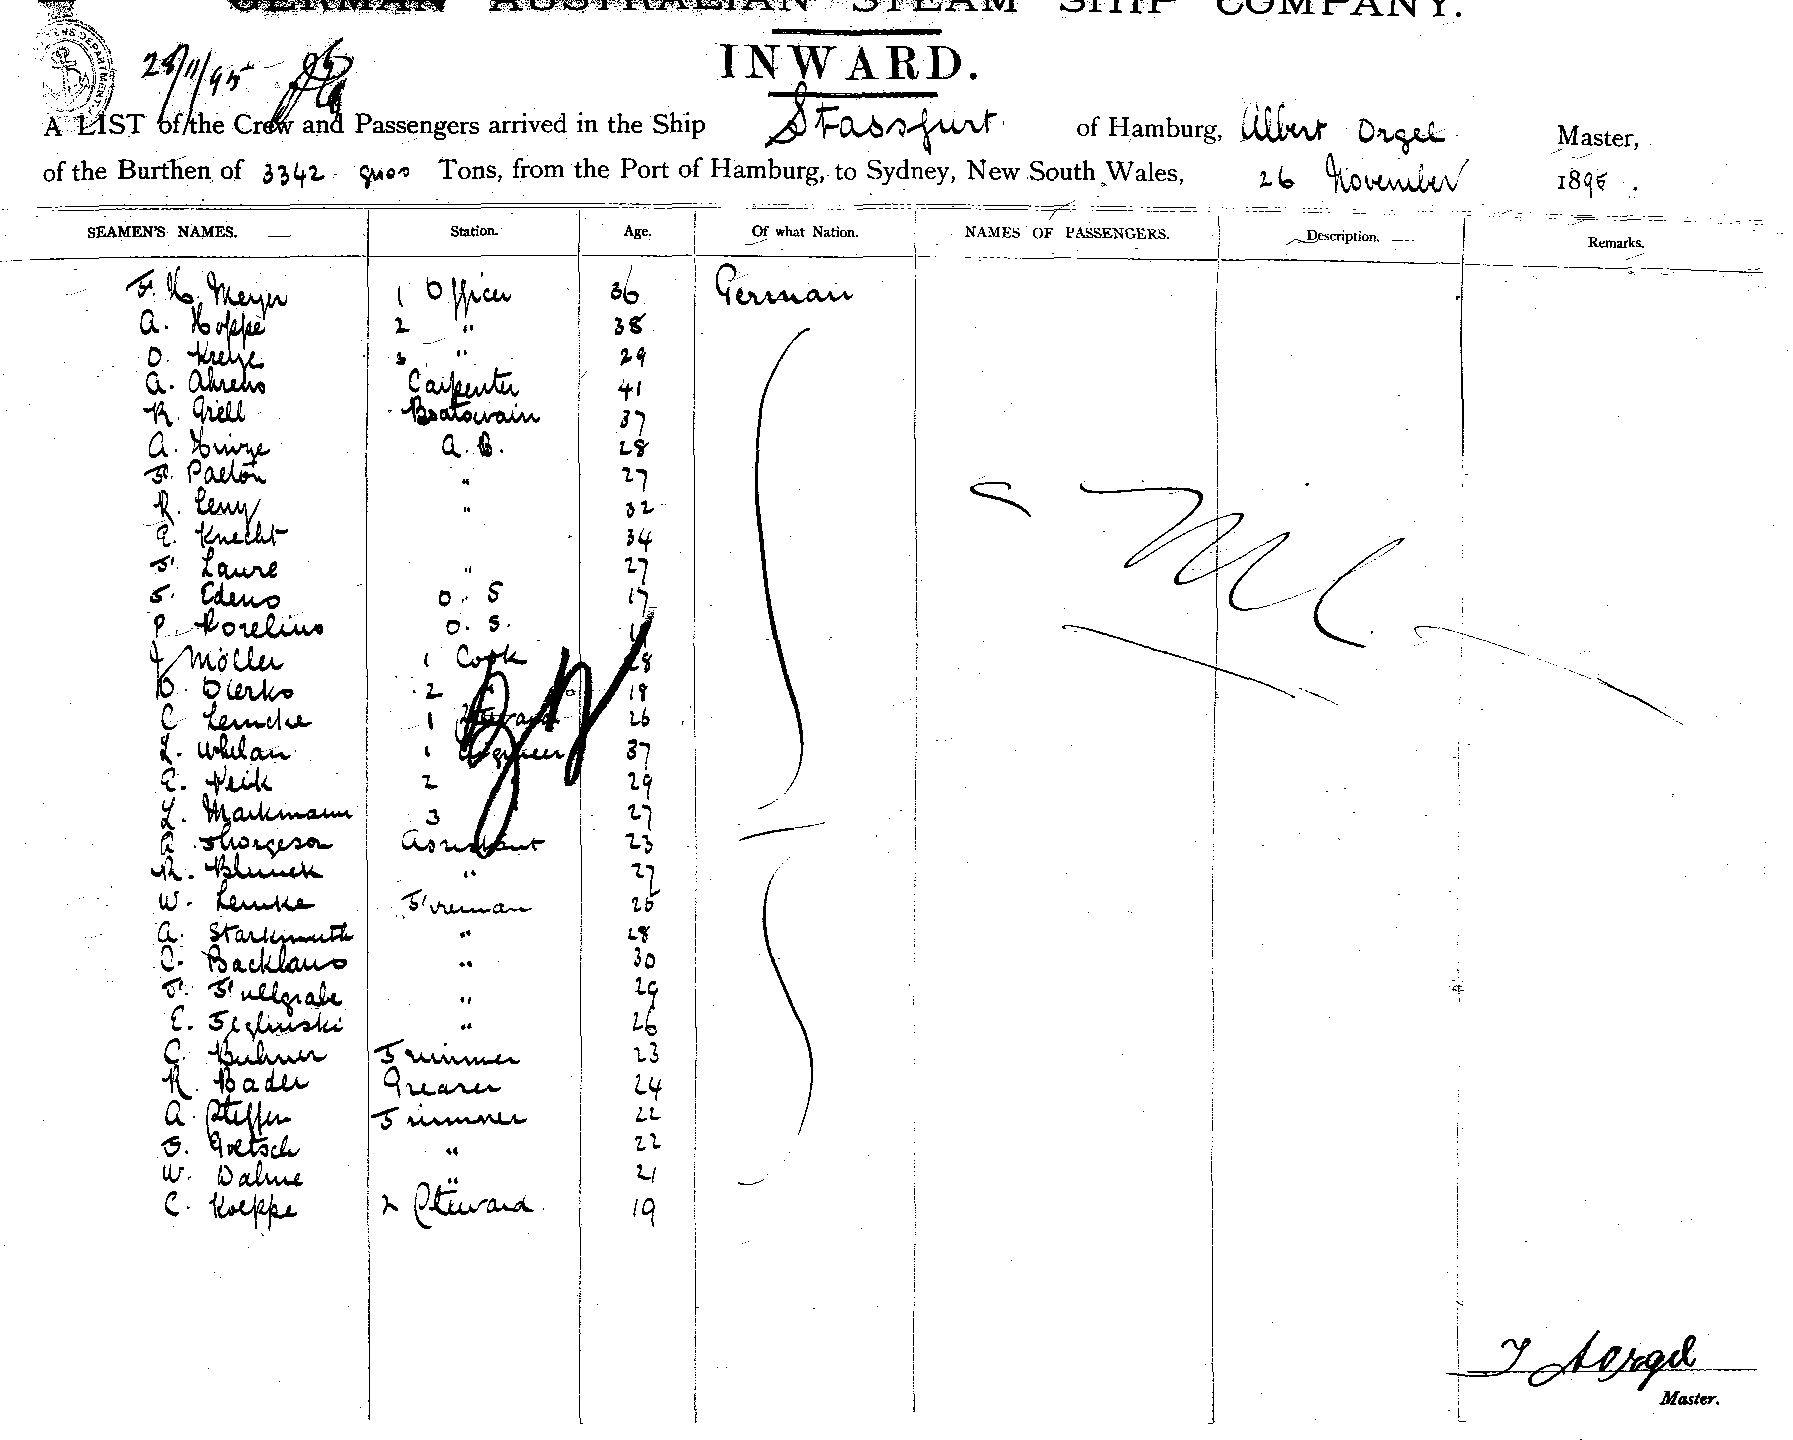 GERMAN AUSTRALIAN STEAM SHIP COMPANY.
INWARD.
28/11/95
A LIST of the Crew and Passengers arrived in the Ship Stassfurt of Hamburg, Albert Orgel Master,
of the Burthen of 3342 Tons, from the Port of Hamburg, to Sydney, New South Wales, 26 November 1895.
SEAMEN'S NAMES. Station. Age. Of what Nation. NAMES OF PASSENGERS. Description. Remarks.
F. H. Meyer 1 Officer 36 German
A. Hoppe 2 " 38
O. 3 " 29
A. Ahrens Carpenter 41
R. Grell Boatswain 37
A. Hinze A.B. 28
F. " 27
R. " 32
E. Knecht 34
F. Laure " 27
F. Edens O. S 17
P. O. S.
J Möller 1 Cook 28
D. Dierks 2 19
C Lemcke 1 Steward 26
L. Whelan 1 Engineer 37
E. 2 29
L. Markmann 3 27
A Thorgeson Assistant 23
R. Blunck " 27
W. Lemke Fireman 25
A. Starkmuth " 28
O. Backhaus " 30
F. Fullgrabe " 29
E. Jeglinski " 26
C. Buhner Trimmer 23
R. Bader Greaser 24
A. Steffen Trimmer 22
F. Goetsch " 22
W. Dahme " 21
C. Koeppe 2 Steward 19
Nil
Master.